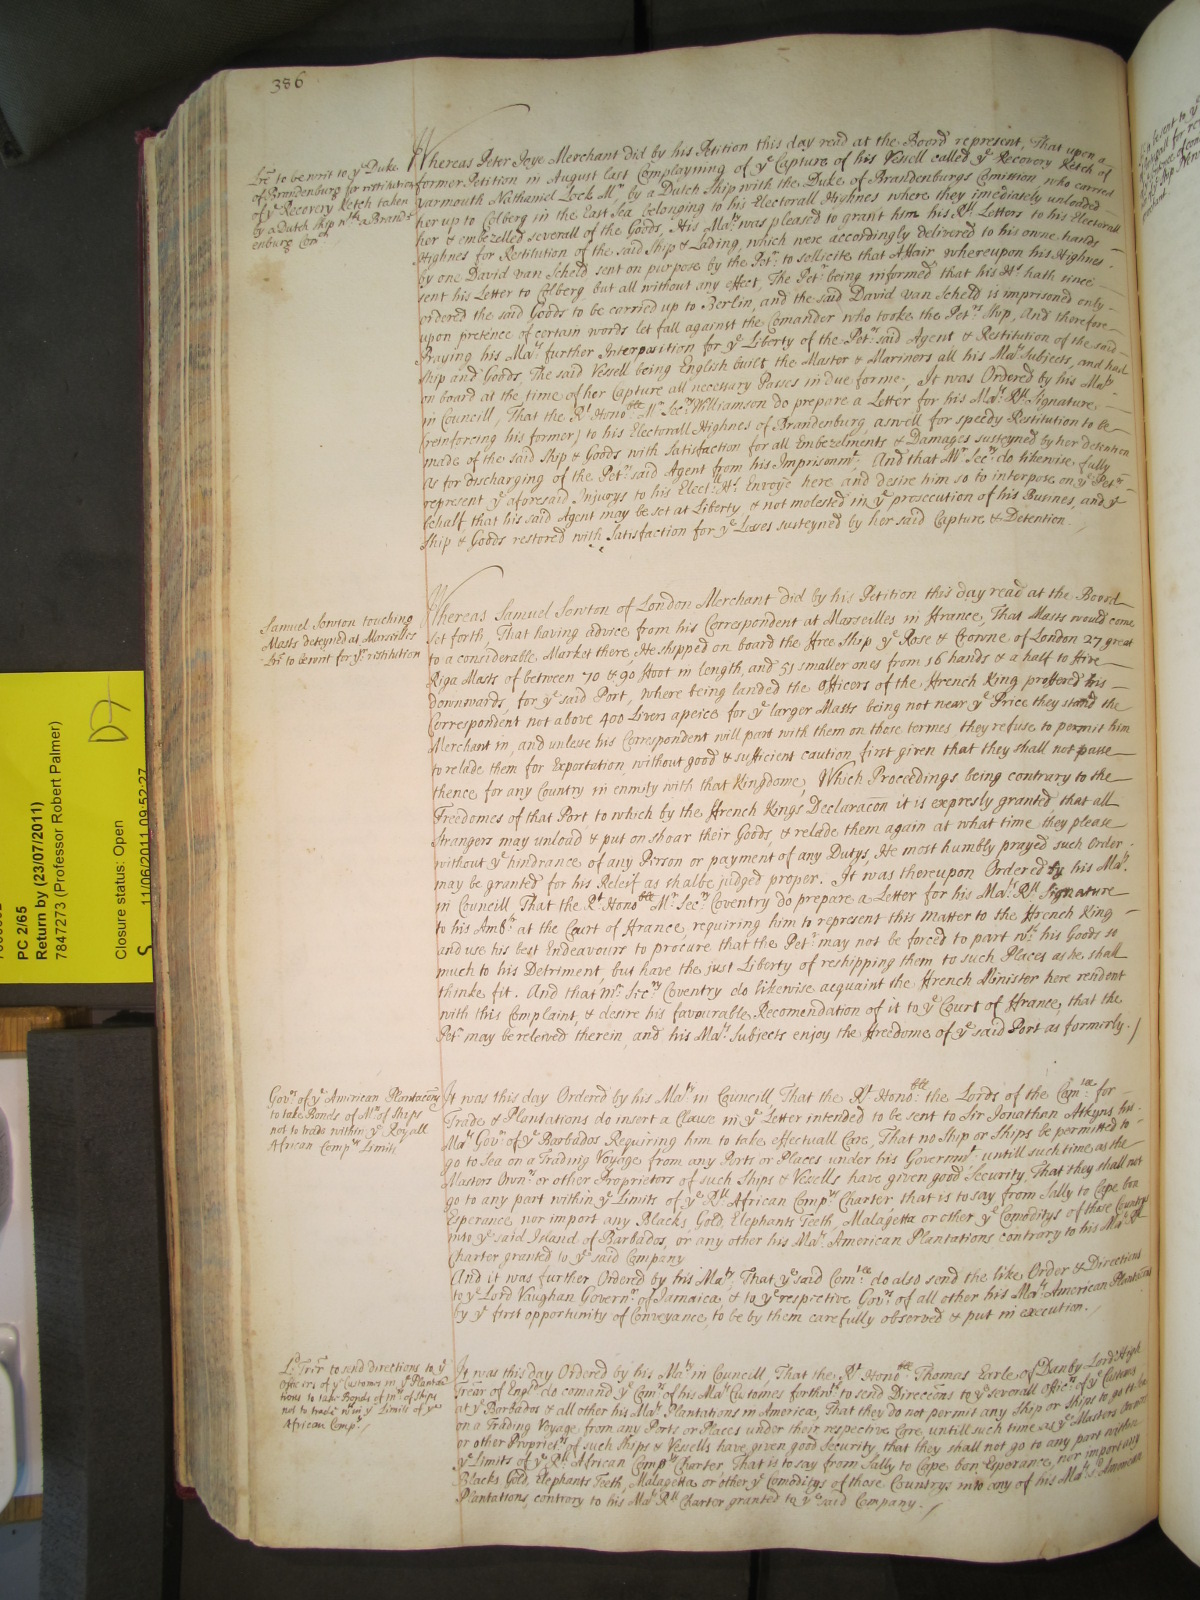 386
Lre to be writ to ye Duke
of Brandenburg for restitution
of ye Recovery Ketch taken
by a Dutch ship wth a Brand
enburg Comn
Whereas Peter Joye Merchant did by his Petition this day read at the Board represent, That upon a
former Petition in August last Complayning of ye Capture of his Vessell called ye Recovery Ketch of
Yarmouth Nathaniel Lock Mr by a Dutch Ship with the Duke of Brandenburgs Comission, who carried
her up to Colberg in the East Sea belonging to his Electorall Highnes where they imediately unloaded
her & embezelled severall of the Goods, His Maty was pleased to grant him his Rll Letters to his Electorall
Highnes for Restitution of the said Ship & Lading, which were accordingly delivered to his owne hands
by one David van Scheld sent on purpose by the Petr to sollicite that Affair whereupon his Highnes
sent his Letter to Colberg but all without any effect, The Petr being informed that his Hs hath since
ordered the said Goods to be carried up to Berlin, and the said David van Scheld is imprisoned only
upon pretence of certain words let fall against the Comander who tooke the Petrs Ship, And therefore
Praying his Mats further Interposition for ye Liberty of the Petrs said Agent & Restitution of the said
Ship and Goods, The said Vessell being English built the Master & Mariners all his Mats Subjects, and had
on board at the time of her Capture all necessary Passes in due forme, It was Ordered by his Maty
in Councill, That the Rt Honoble Mr Secry Williamson do prepare a Letter for his Mats Rll Signature
(reinforcing his former) to his Electorall Highnes of Brandenburg aswell for speedy Restitution to be
made of the said Ship & Goods with Satisfaction for all Embezelments & Damages susteyned by her detention
As for discharging of the Petrs said Agent from his Imprisonmt. And that Mr Secry do likewise fully
represent ye aforesaid Injurys to his Electll Hs Envoyé here and desire him so to interpose on ye Petrs
behalf, that his said Agent may be set at Liberty & not molested in ye prosecution of his Busines, and ye
Ship & Goods restored with Satisfaction for ye Losses susteyned by her said Capture & Detention
Samuel Sowton touching
Masts deteyned at Marseilles
Lre to be writ for yr restitution
Whereas Samuel Sowton of London Merchant did by his Petition this day read at the Board
set forth, That having advice from his Correspondent at Marseilles in France, That Masts would come
to a considerable Market there, He shipped on board the Free Ship ye Rose & Crowne of London 27 great
Riga Masts of between 70 & 90 Foot in length, and 51 smaller ones from 16 hands & a half to Five
downwards, for ye said Port, where being landed the Officers of the French King proffered his
Correspondent not above 400 Livers apeice for ye larger Masts being not near ye Price they stand the
Merchant in, and unlesse his Corespondent will part with them on those termes, they refuse to permit him
to relade them for Exportation, without good & sufficient caution first given that they shall not passe
thence for any Country in enmity with that Kingdome, Which Proceedings being contrary to the
Freedomes of that Port to which by the French Kings Declaracon it is expresly granted, that all
Strangers may unload & put on shoar their Goods, & relade them again at what time they please
without ye hindrance of any Person or payment of any Dutys, He most humbly prayed such Order
may be granted for his Releif as shalbe judged proper. It was thereupon Ordered by his Maty
in Councill That the Rt Honoble Mr Secry Coventry do prepare a Letter for his Mats Rll Signature
to his Ambr at the Court of France, requiring him to represent this matter to the French King
and use his best Endeavours to procure that the Petr may not be forced to part wth his Goods so
much to his Detriment, but have the just Liberty of reshipping them to such Places as he shall
thinke fit. And that Mr Secry Coventry do likewise acquaint the French Minister here resident
with this Complaint, & desire his favourable Recomendation of it to ye Court of France, that the
Petr may be releived therein, and his Mats Subjects enjoy the Freedome of ye said Port as formerly.
Govrs of ye American Plantacons
to take Bonds of Mrs of Ships
not to trade within ye Royall
African Compas Limits
It was this day Ordered by his Maty in Councill, That the Rt Honoble the Lords of the Comtee for
Trade & Plantations do insert a Clause in ye Letter intended to be sent to Sir Jonathan Atkyns his
Mats Govr of ye Barbados Requiring him to take effectuall Care, That no Ship or Ships be permitted to
go to Sea on a Trading Voyage from any Ports or Places under his Governmt untill such time as the
Masters Ownrs or other Proprietors of such Ships & Vessells have given good Security, That they shall not
go to any part within ye Limits of ye Rll African Compas Charter that is to say from Sally to Cape bon
Esperance nor import any Blacks Gold, Elephants Teeth, Malagetta or other ye Comoditys of those Countrys
into ye said Island of Barbados, or any other his Mats American Plantations contrary to his Mats Rll
Charter granted to ye said Company
And it was further Ordered by his Maty, That ye said Comtee do also send the like Order & Directions
to ye Lord Vaughan Governr of Jamaica & to ye respective Govrs of all other his Mats American Plantacons
by ye first opportunity of Conveyance, to be by them carefully observed & put in execution.
Ld Trer to send directions to ye
Officers of ye Customes in ye Plantac
tions to take Bonds of Mrs of Ships
not to trade wthin ye Limits of ye
African Compa
It was this day Ordered by his Maty in Councill, That the Rt Honoble Thomas Earle of Danby Lord High
Trear of Engld do comand ye Comrs of his Mats Customes forthwth to send Direccons to ye severall Officrs of ye Customs
at ye Barbados & all other his Mats Plantations in America, That they do not permit any Ship or Ships to go to Sea
on a Trading Voyage from any Ports or Places under their respective Care, untill such time as ye Masters Owners
or other Proprietrs of such Ships & Vessells have given good Security, that they shall not go to any part within
ye Limits of ye Rll African Compas Charter That is to say from Sally to Cape bon Esperance, nor import any
Blacks Gold, Elephants Teeth, Malagetta or other ye Comoditys of those Countrys into any of his Mats American
Plantations, contrary to his Mats Rll Charter granted to ye said Company.
PC 2/65
Return by (23/07/2011)
7847273 (Professor Robert Palmer)
Closure status: Open
S 11/06/2011 09:52:27